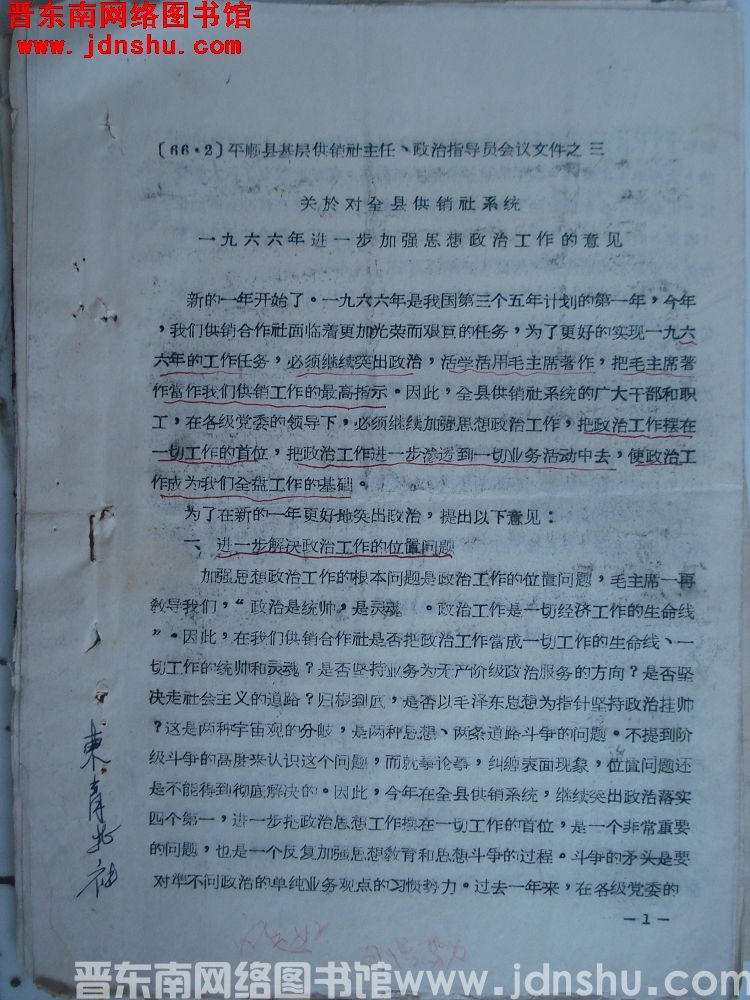 晋东南网络图书馆
www.jdnshu.com
〔66·2〕平顺县基层供销社主任、政治指导员会议文件之三
关於对全县供销社系统
一九六六年进一步加强思想政治工作的意见
新的一年开始了。一九六六年是我国第三个五年计划的第一年，今年
，我们供销合作社面临着更加光荣而艰巨的任务，为了更好的实现一九六
六年的工作任务，必须继续突出政治，活学活用毛主席著作，把毛主席著
作當作我们供销工作的最高指示。因此，全县供销社系统的广大干部和职
工，在各级党委的领导下，必须继续加强思想政治工作，把政治工作摆在
一切工作的首位，把政治工作进一步渗透到一切业务活动中去，使政治工
作成为我们全盘工作的基础。
为了在新的一年更好地突出政治，提出以下意见：
一、进一步解决政治工作的位置问题
加强思想政治工作的根本问题是政治工作的位置问题，毛主席一再
教导我们，“政治是统帅，是灵魂 。政治工作是一切经济工作的生命线
”。因此，在我们供销合作社是否把政治工作當成一切工作的生命线、一
切工作的统帅和灵魂？是否坚持业务为无产阶级政治服务的方向？是否坚
决走社会主义的道路？归根到底，是否以毛泽东思想为指针坚持政治挂帅
？这是两种宇宙观的分岐，是两种思想、两条道路斗争的问题。不提到阶
级斗争的高度来认识这个问题，而就事论事，纠缠表面现象，位置问题还
是不能得到彻底解决的。因此，今年在全县供销系统，继续突出政治落实
四个第一，进一步把政治思想工作摆在一切工作的首位，是一个非常重要
的问题，也是一个反复加强思想教育和思想斗争的过程。斗争的矛头是要
对準不问政治的单纯业务观点的习惯势力。过去一年来，在各级党委的
—1—
東青北社
晋东南网络图书馆 www.jdnshu.com